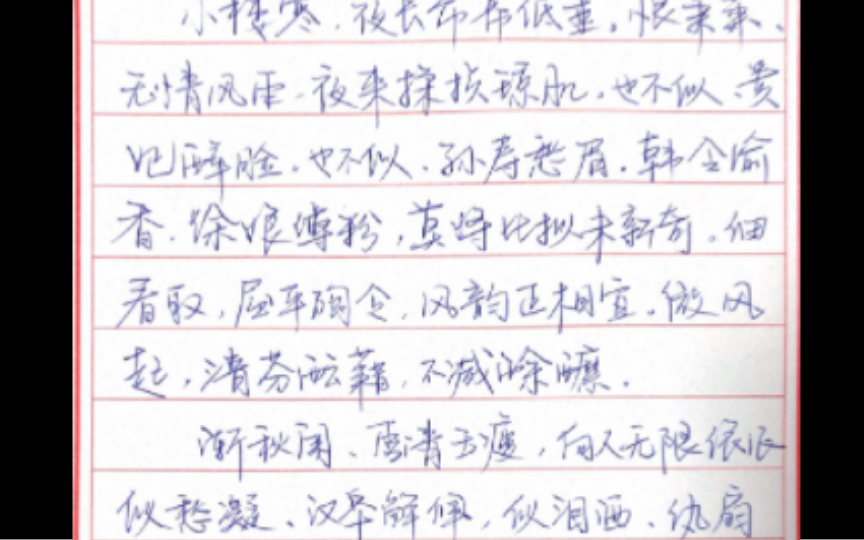 小楼寒、夜长帘幕低垂。恨萧萧、
无情风雨、夜来揉损琼肌。也不似、贵
妃醉脸、也不似、孙寿愁眉。韩令偷
香、徐娘傅粉，莫将比拟未新奇。细
看取，屈平陶令，风韵正相宜。微风
起，清芬酝藉，不减酴醾。
渐秋阑、雪清玉瘦，向人无限依依
似愁凝、汉皋解佩，似泪洒、纨扇